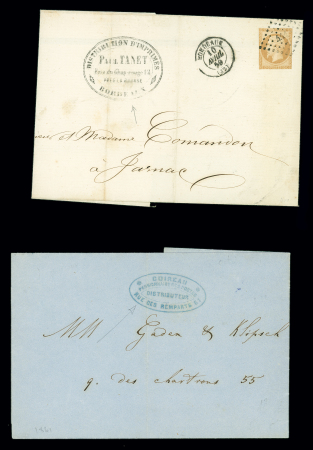 DISTRIBUTION D'IMPRIMÉS
PAUL TANET
BORDEAUX
BORDEAUX
et Madame Comandon
à Jarnac
COIREAU
DISTRIBUTEUR
RUE DES REMPARTS
MM Gaden & Klipsch
q. des chartrons 55